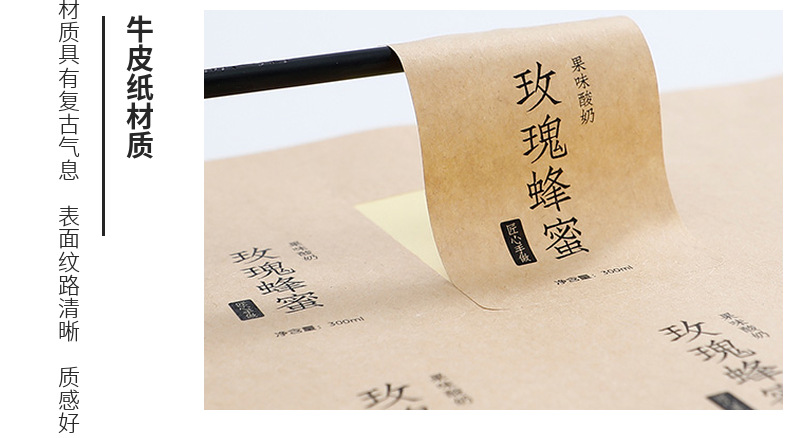 牛皮纸材质
材质具有复古气息 表面纹路清晰 质感好
果味酸奶
玫瑰蜂蜜
匠心手做
净含量：300ml
果味酸奶
玫瑰蜂蜜
匠心手做
净含量：300ml
果味酸奶
玫瑰蜂
果味酸奶
玫瑰蜂蜜